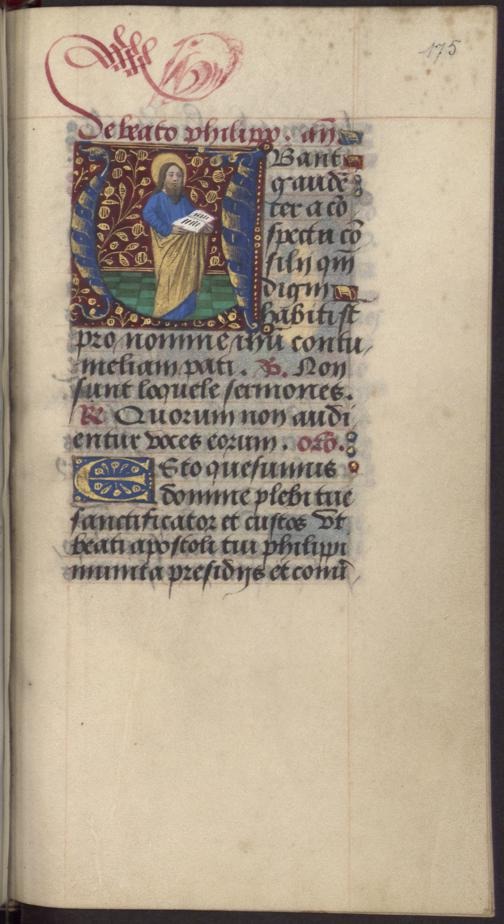 175
De beato philippo. an̄
Ibant
gaudē
ter a cō
spectu cō
silij qm̄
digni
habiti st̄
pro nomine ihū contu
meliam pati. V. Non
sunt loquele sermones.
R. Quorum non audi
entur voces eorum. or̄o.
Esto quesumus
domine plebi tue
sanctificator et custos vt
beati apostoli tui philippi
munita presidijs et conū